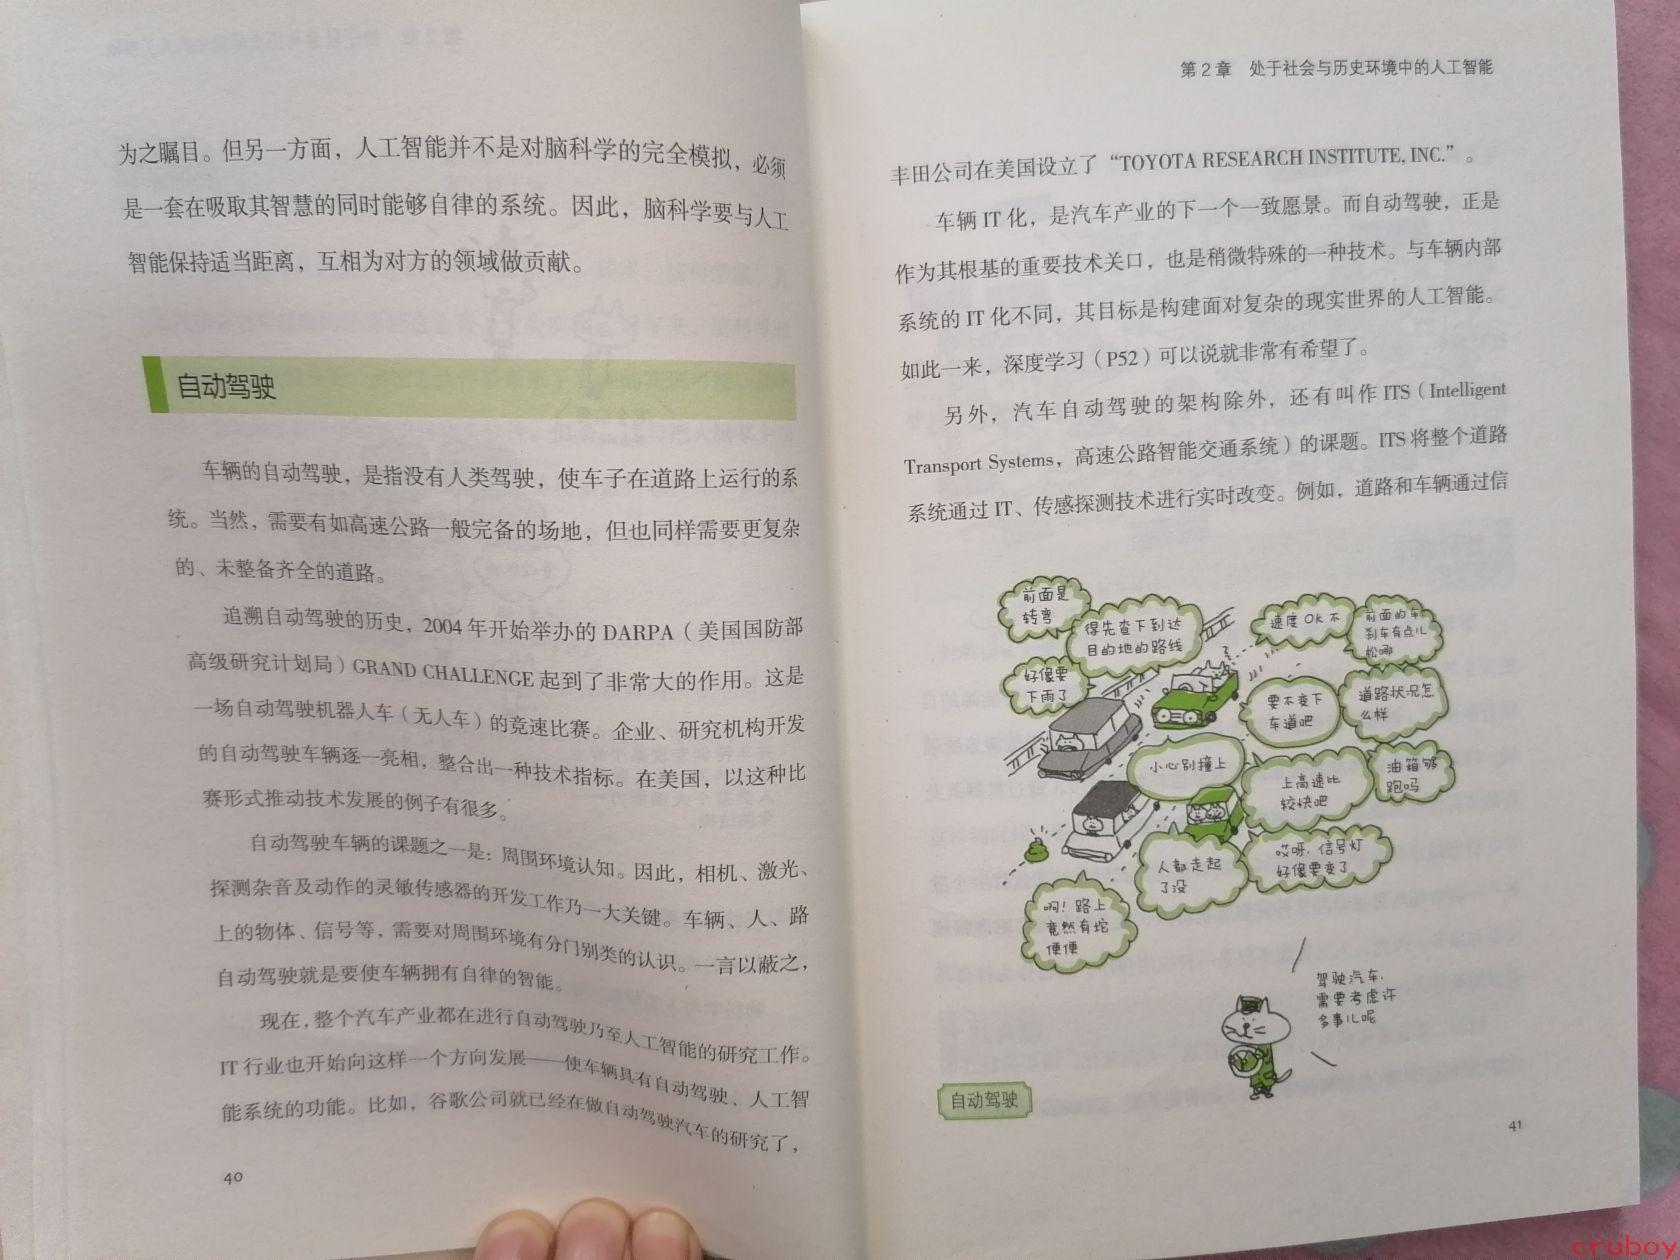 为之瞩目。但另一方面，人工智能并不是对脑科学的完全模拟，必须
是一套在吸取其智慧的同时能够自律的系统。因此，脑科学要与人工
智能保持适当距离，互相为对方的领域做贡献。
自动驾驶
车辆的自动驾驶，是指没有人类驾驶，使车子在道路上运行的系
统。当然，需要有如高速公路一般完备的场地，但也同样需要更复杂
的、未整备齐全的道路。
追溯自动驾驶的历史，2004 年开始举办的 DARPA（美国国防部
高级研究计划局）GRAND CHALLENGE 起到了非常大的作用。这是
一场自动驾驶机器人车（无人车）的竞速比赛。企业、研究机构开发
的自动驾驶车辆逐一亮相，整合出一种技术指标。在美国，以这种比
赛形式推动技术发展的例子有很多。
自动驾驶车辆的课题之一是：周围环境认知。因此，相机、激光、
探测杂音及动作的灵敏传感器的开发工作乃一大关键。车辆、人、路
上的物体、信号等，需要对周围环境有分门别类的认识。一言以蔽之，
自动驾驶就是要使车辆拥有自律的智能。
现在，整个汽车产业都在进行自动驾驶乃至人工智能的研究工作。
IT 行业也开始向这样一个方向发展——使车辆具有自动驾驶、人工智
能系统的功能。比如，谷歌公司就已经在做自动驾驶汽车的研究了，
40
第 2 章 处于社会与历史环境中的人工智能
丰田公司在美国设立了“TOYOTA RESEARCH INSTITUTE, INC.”。
车辆 IT 化，是汽车产业的下一个一致愿景。而自动驾驶，正是
作为其根基的重要技术关口，也是稍微特殊的一种技术。与车辆内部
系统的 IT 化不同，其目标是构建面对复杂的现实世界的人工智能。
如此一来，深度学习（P52）可以说就非常有希望了。
另外，汽车自动驾驶的架构除外，还有叫作 ITS（Intelligent
Transport Systems，高速公路智能交通系统）的课题。ITS 将整个道路
系统通过 IT、传感探测技术进行实时改变。例如，道路和车辆通过信
前面是
转弯
得先查下到达
目的地的路线
好像要
下雨了
速度 OK 不
前面的车
刹车有点儿
松哪
要不变下
车道吧
道路状况怎
么样
小心别撞上
上高速比
较快吧
油箱够
跑吗
人都走起
了没
哎呀，信号灯
好像要变了
啊！路上
竟然有坨
便便
驾驶汽车，
需要考虑许
多事儿呢
自动驾驶
41
cruboy